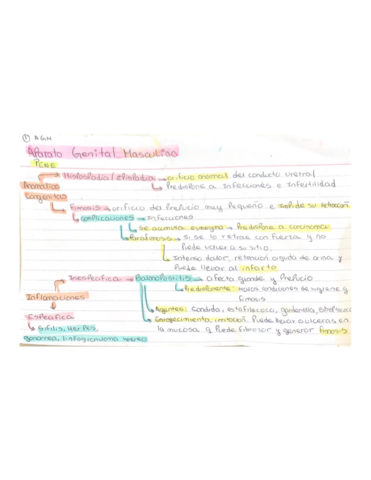 ① A.G.M
Aparato Genital Masculino
PENE
Hipospadia / Epispadia → orificio anormal del conducto uretral
Anomalías → Predispone a Infecciones e Infertilidad
Congénitas
Fimosis → orificio del Prepucio muy Pequeño e impide su retracción
complicaciones → Infecciones
Se acumula esmegma → Predispone a carcinoma
Parafimosis → si se lo retrae con fuerza y no
Puede volver a su sitio.
Intenso dolor, retención aguda de orina y
Puede llevar al infarto
Inespecífica → Balanopostitis → afecta glande y Prepucio
Predisponente malas condiciones de higiene y
Inflamaciones fimosis
Agentes: Candida, estafilococo, gardnerella,
Específica Enrojecimiento, irritación. Puede llevar a úlceras en
→ Sífilis, Herpes, la mucosa q Puede fibrosar y generar fimosis
gonorrea, linfogranuloma